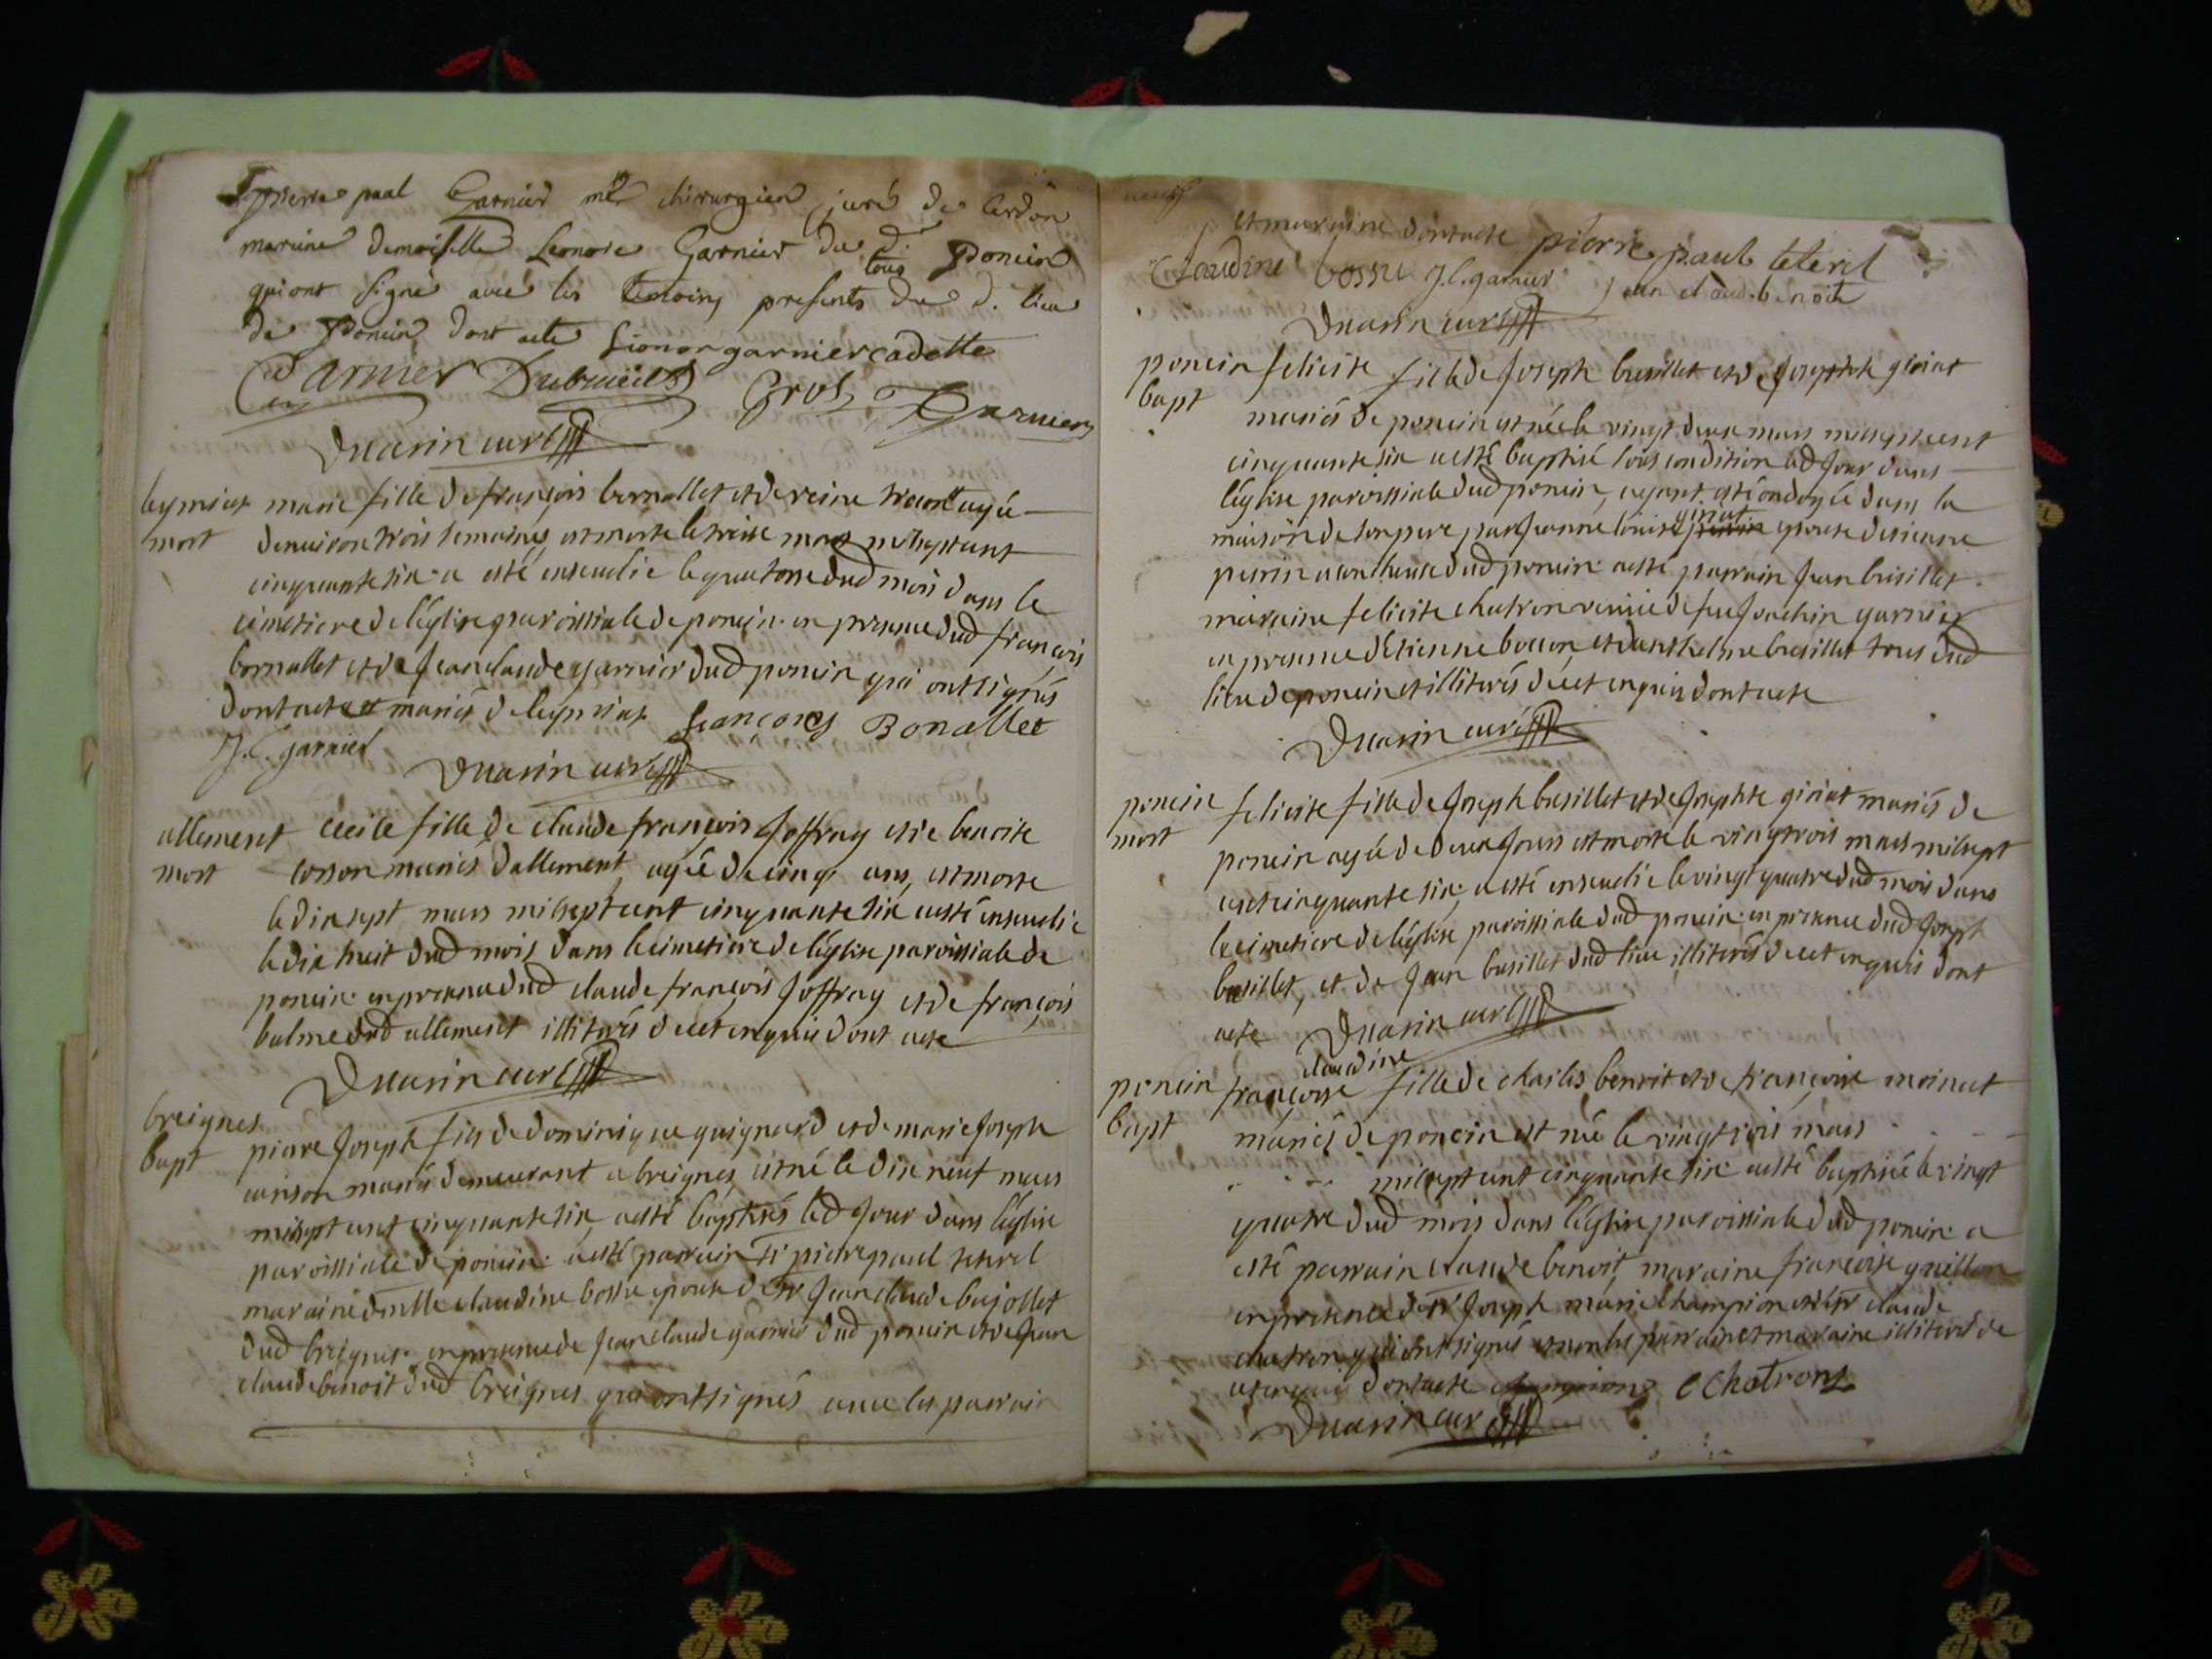 Sr pierre paul Garnier mtre chirurgien juré de Cerdon
maraine demoiselle Leonore Garnier du d. Poncin
qui ont signé avec les temoins presents tous du d. lieu
de Poncin dont acte Lionor garnier cadette
Garnier Dubreüil Gros Garnier
Duarin curé
leymiat marie fille de françois bornallet et de reine agée
mort denviron trois semaines, est morte le treise mars milsept cent
cinquante six: a esté ensevelie le quatorse dud mois dans le
cimetiere de léglise parroissiale de poncin: en presence dud françois
bornallet et de Jean claude garnier dud poncin qui ont signés
dont acte et mariés de leymiat françoys Bonallet
J.C. garnier Duarin curé
allement cecile fille de claude françois Joffray et de benoite
mort cosson mariés dallement, agée de cinq ans, est morte
le dix sept mars milsept cent cinquante six a esté ensevelie
le dix huit dud mois dans le cimetiere de léglise paroissiale de
poncin: en presence dud claude françois Joffray et de françois
balme dud allement illiterés de cet enquis dont acte
Duarin curé
breignes
bapt piere Joseph fils de dominique guignard et de marie Joseph
mariés demeurant a breignes, est né le dix neuf mars
milsept cent cinquante six, a esté baptisés led Jour dans léglise
paroissiale de poncin: a esté parrain sr piere paul teterel
maraine dmlle claudine bossu epouse de sr Jean claude bujollet
dud breignes: en presence de Jean claude garnier dud poncin et de Jean
claude benoit dud breignes qui ont signés avec les parrain
et maraine dont acte pierre paul teterel
Claudine bossu J.C. garnier Jean claude benoit
Duarin curé
poncin felicité fille de Joseph busillet et de Josephte giriat
bapt mariés de poncin est née le vingt deux mars milsept cent
cinquante six a esté baptisé sous condition led Jour dans
léglise paroissiale dud poncin, ayant esté ondoyée dans la
maison de son pere par Jeanne louise giriat epouse detienne
perrin acoucheuse dud poncin: a esté parrain Jean busillet
maraine felicité chatron veuve de feu Joachin garnier
en presence détienne bocon, et danthelme busillet tous dud
lieu de poncin et illiterés de cet enquis dont acte
Duarin curé
poncin felicité fille de Joseph busillet et de Josephte giriat mariés de
mort poncin agée de deux Jours est morte le vingtrois mars milsept
cent cinquante six, a esté ensevelie le vingt quatre dud mois dans
le cimetiere de léglise paroissiale dud poncin: en presence dud Joseph
busillet, et de Jean busillet dud lieu illiterés de cet enquis dont
acte Duarin curé
claudine
poncin françoise fille de charles benoit et de françoise moinat
bapt mariés de poncin est née le vingtrois mars
milsept cent cinquante six: a esté baptisée le vingt
quatre dud mois dans léglise paroissiale dud poncin: a
esté parrain claude benoit, maraine françoise guillon
en presence de sr Joseph marie champion et de sr claude
chatron qui ont signés et non les parrain et maraine illiterés de
cet enquis dont acte champion C Chatron
Duarin curé